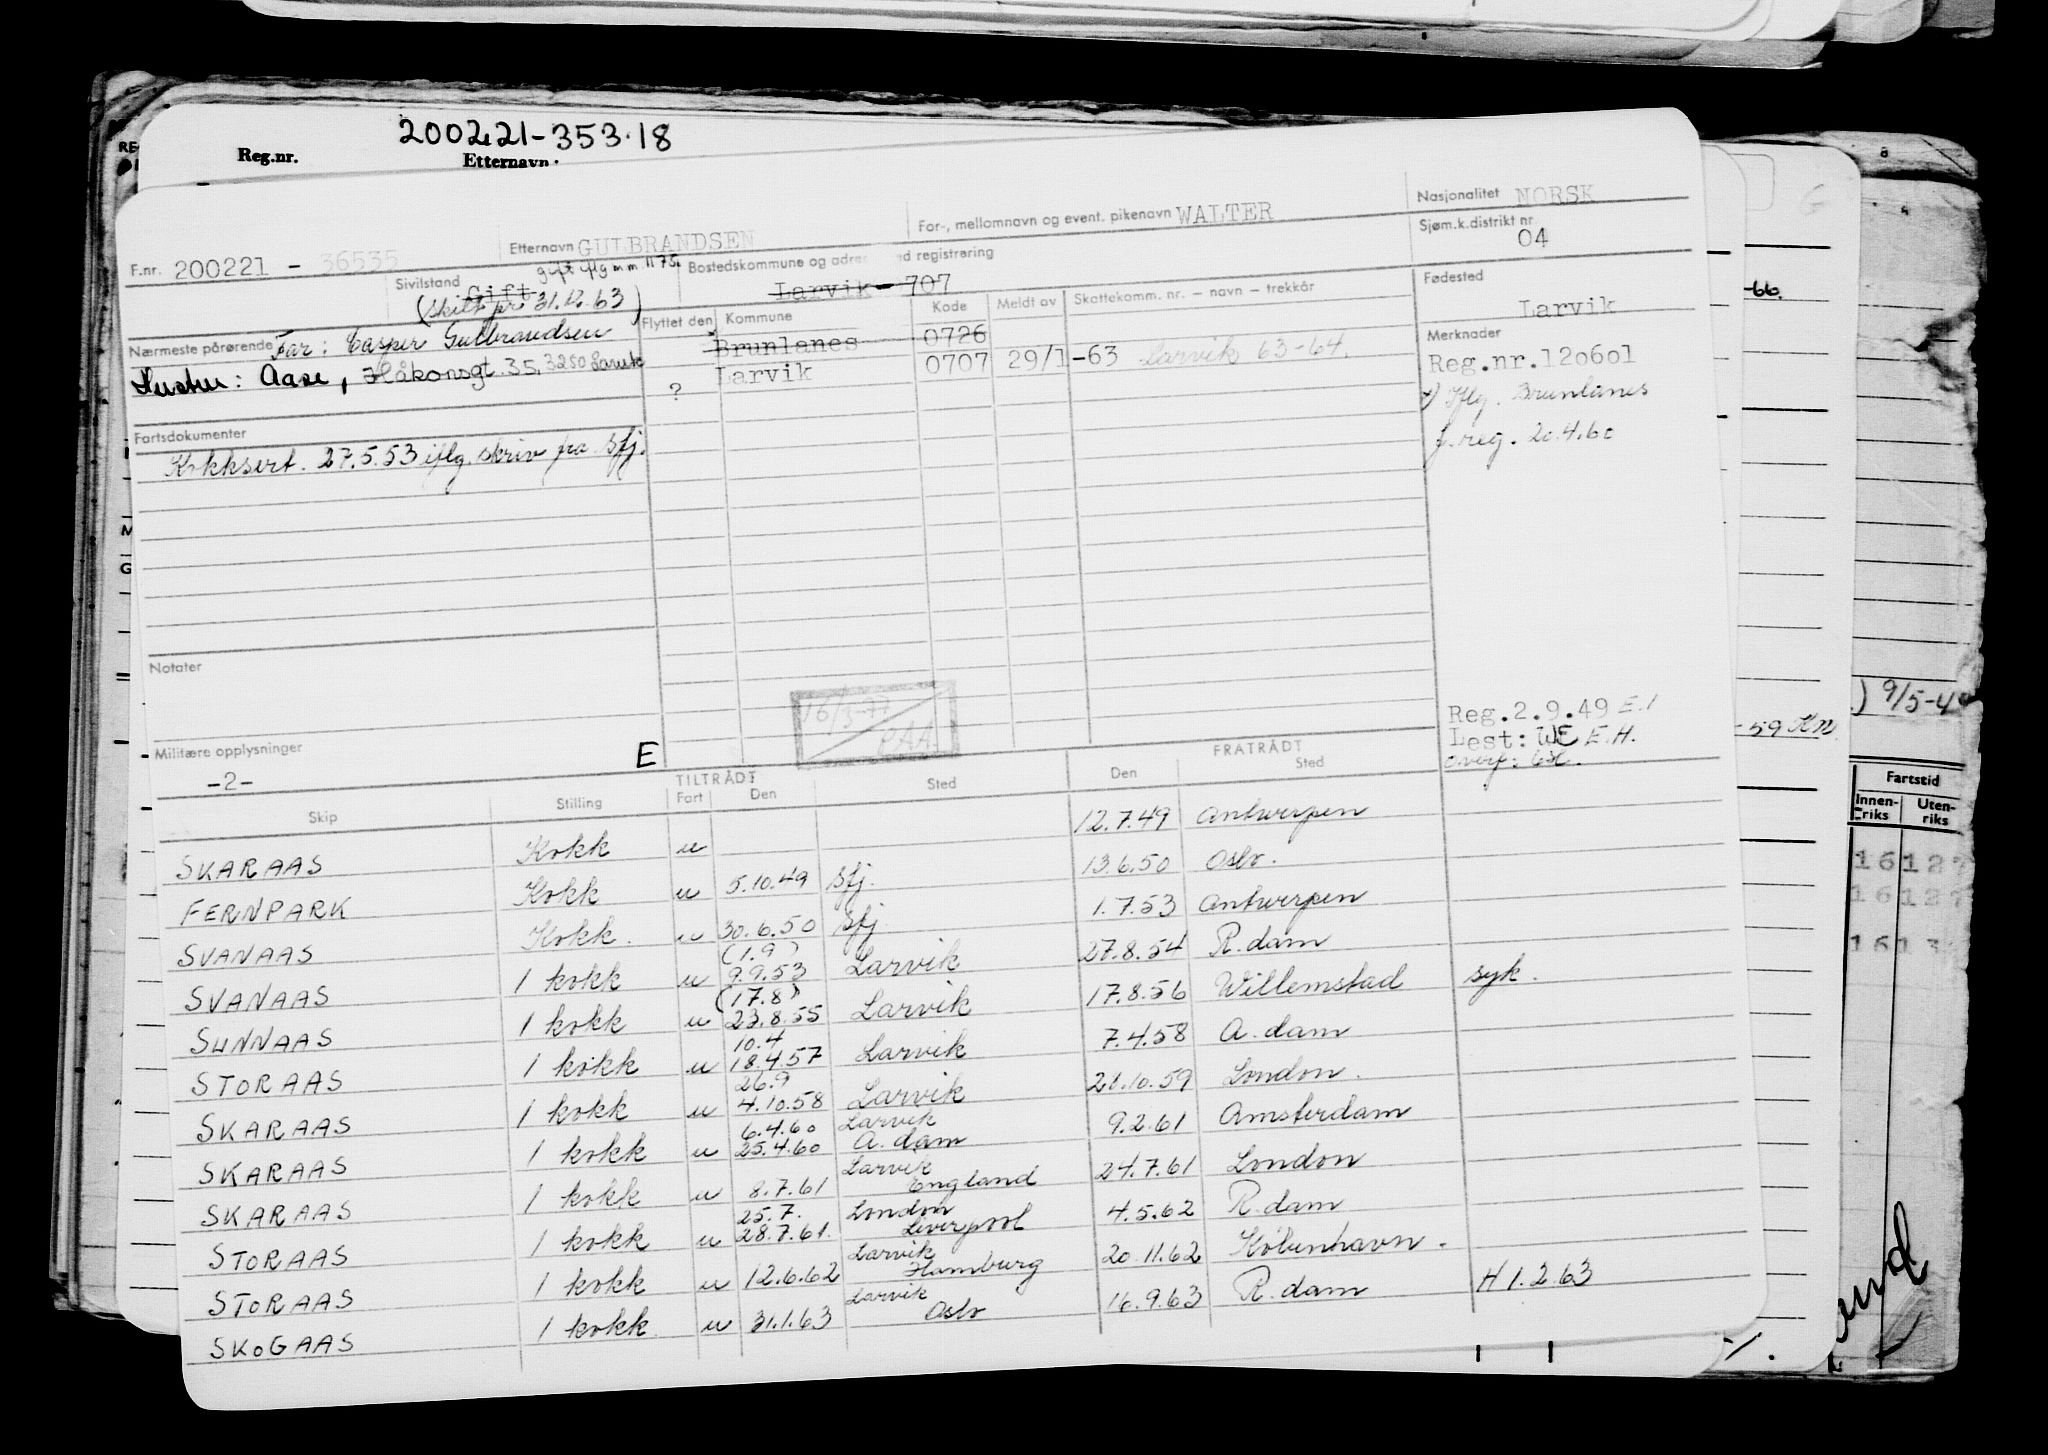 200221-353.18
Reg.nr. Etternavn
F.nr. 200221 - 36535 Etternavn GULBRANDSEN For-, mellomnavn og event. pikenavn WALTER Nasjonalitet NORSK
Sjøm.k.distrikt nr. 04
Sivilstand Gift gift iflg m.m. 11 75. Bostedskommune og adresse ved registrering
(skilt pr. 31.12.63) Larvik - 707
Fødested Larvik
Nærmeste pårørende Far: Casper Gulbrandsen
Hustru: Aase, Håkonsgt. 35, 3250 Larvik
Flyttet den Kommune Kode Meldt av Skattekomm. nr. – navn – trekkår
Brunlanes 0726
? Larvik 0707 29/1-63 Larvik 63-64.
Merknader
Reg.nr.120601
x) Iflg. Brunlanes
f. reg. 20.4.60
Fartsdokumenter
Kokksert. 27.5.53 iflg. skriv fra Sfj.
Notater
16/3-77
RAA.
Reg.2.9.49 E.I
Lest: WE E.H.
Militære opplysninger
-2- E
TILTRÅDT FRATRÅDT
Skip Stilling Fart Den Sted Den Sted
SKARAAS Kokk u 12.7.49 Antwerpen
FERNPARK Kokk u 5.10.49 Sfj. 13.6.50 Oslo.
SVANAAS Kokk. u 30.6.50 Sfj. 1.7.53 Antwerpen
SVANAAS 1 kokk u (1.9) 9.9.53 Larvik 27.8.54 R.dam
SUNNAAS 1 kokk u (17.8) 23.8.55 Larvik 17.8.56 Willemstad syk.
STORAAS 1 kokk u 10.4 18.4.57 Larvik 7.4.58 A.dam
SKARAAS 1 kokk u 26.9 4.10.58 Larvik 21.10.59 London.
SKARAAS 1 kokk u 6.4.60 Larvik 25.4.60 A.dam 9.2.61 Amsterdam
SKARAAS 1 kokk u 8.7.61 Larvik England 24.7.61 London
STORAAS 1 kokk u 25.7. London 28.7.61. Liverpool 4.5.62 R.dam
STORAAS 1 kokk u 12.6.62 Larvik Hamburg 20.11.62 København.
SKOGAAS 1 kokk u 31.1.63 Larvik Oslo 16.9.63 R.dam H 1.2.63
G
-66.
9/5-4
-59
Fartstid
Innenriks Utenriks